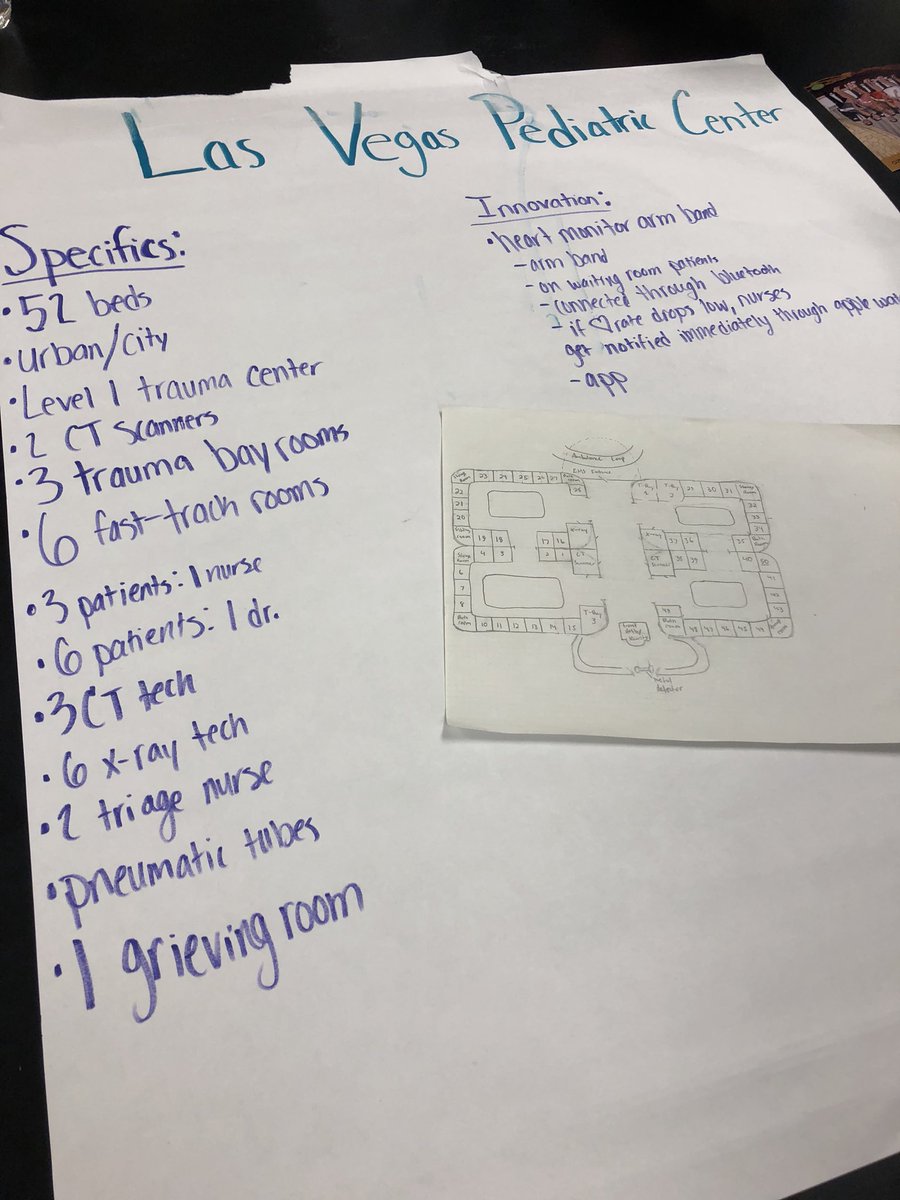 Las Vegas Pediatric Center
Specifics:
• 52 beds
• urban/city
• Level 1 trauma center
• 2 CT Scanners
• 3 trauma bay rooms
• 6 fast-track rooms
• 3 patients: 1 nurse
• 6 patients: 1 dr.
• 3 CT tech
• 6 x-ray tech
• 2 triage nurse
• pneumatic tubes
• 1 grieving room
Innovation:
• heart monitor arm band
- arm band
- on waiting room patients
- connected through bluetooth
- if ♡ rate drops low, nurses
get notified immediately through apple
- app
Ambulance Loop
EMS Entrance
23 24 25 26 27
28
T-Bay 1
T-Bay 2
29 30 31
Storage Room
22
21
20
32
33
34
19 18
17 16
X-ray
X-ray
37 36
35
Bath room
4 3
2 1
CT Scanner
CT Scanner
38 39
40
6
7
8
41
42
43
Bath room
10 11 12 13 14 15
T-Bay 3
49
Bath room
48 47 46 45 44
metal
detector